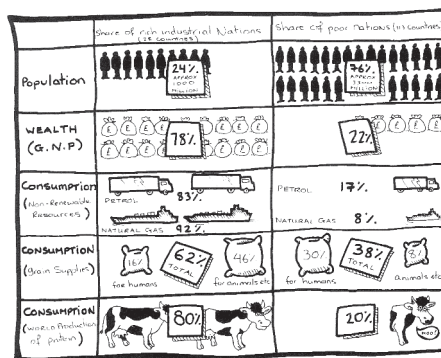 Share of rich industrial Nations
Share of poor nations
Population
24%
APPROX
MILLION
76%
APPROX
MILLION
WEALTH
(G.N.P)
£ £ £ £ £ £
78%
22%
£ £ £
Consumption
(Non-Renewable
Resources)
PETROL
83%
NATURAL GAS 92%
PETROL 17%
NATURAL GAS 8%
CONSUMPTION
(grain Supplies)
16%
for humans
62%
TOTAL
46%
for animals etc
30%
for humans
38%
TOTAL
8%
animals etc
CONSUMPTION
(WORLD Production
of protein)
80%
20%
MOO!